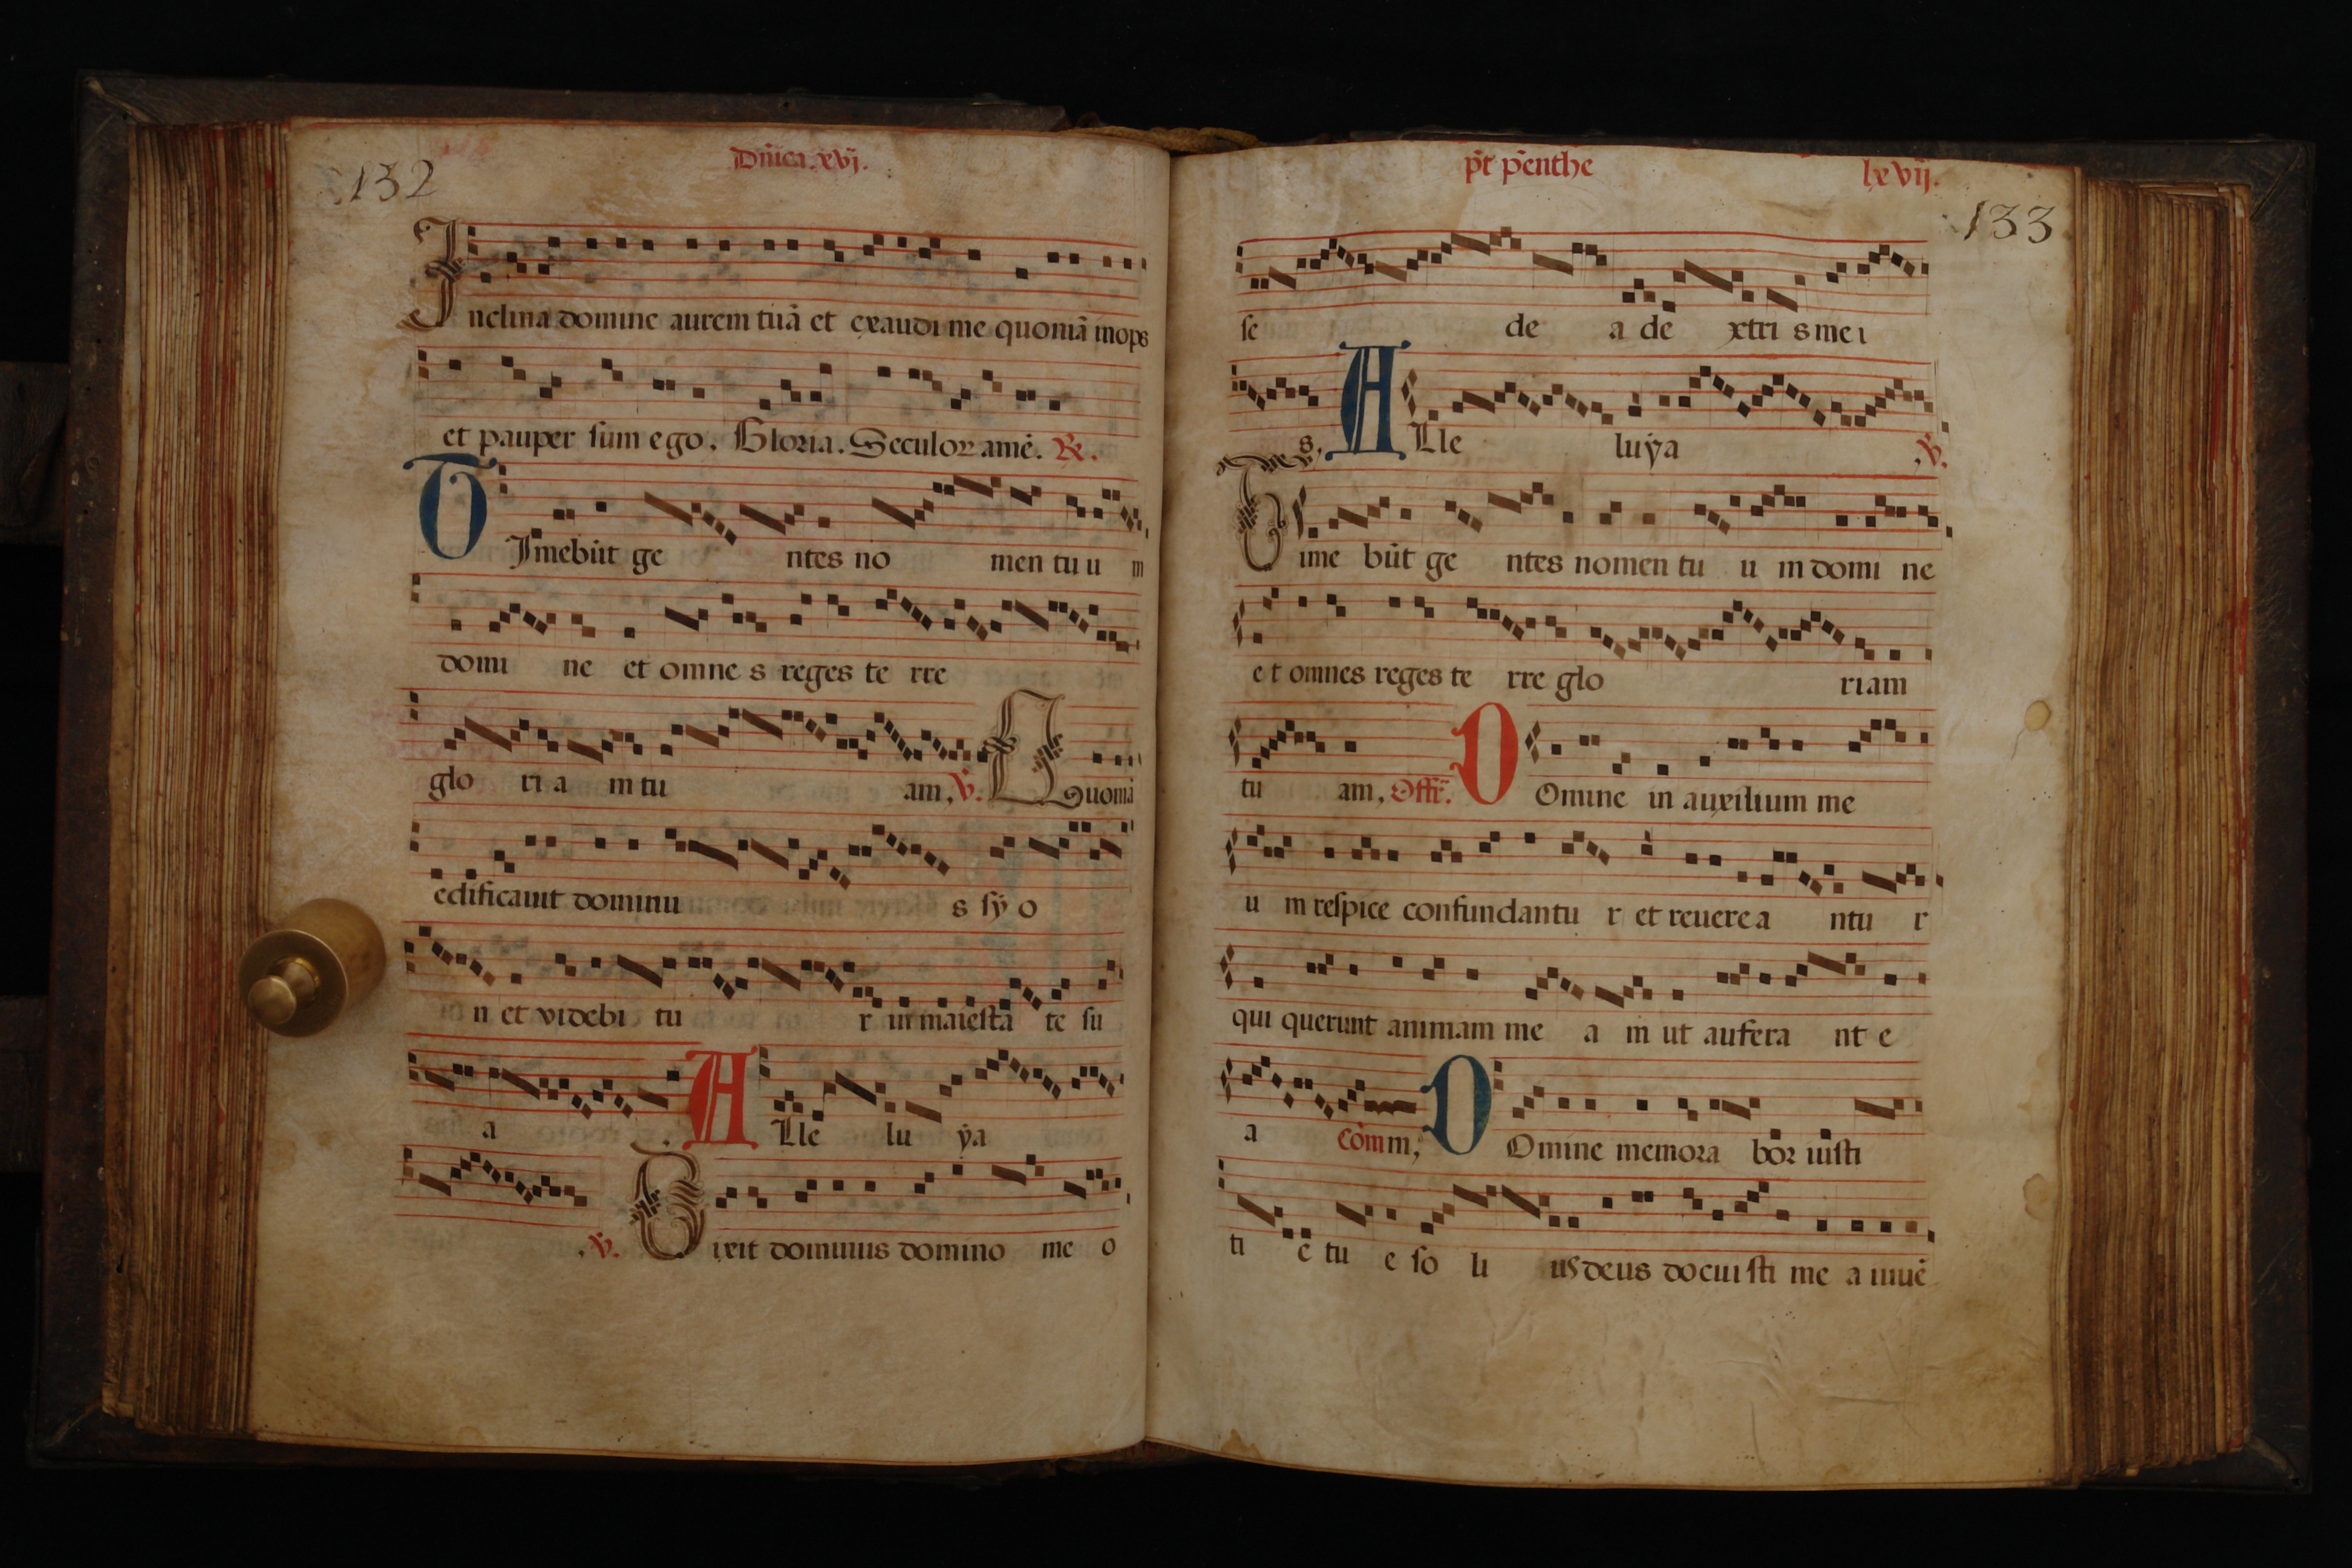 132
Dn̄ica. xvj.
Inclina domine aurem tuā et exaudi me quoniā inops
et pauper sum ego. Gloria. Seculoꝝ amē. ℟.
TImebūt ge ntes no men tu u m
domi ne et omne s reges te rre
glo ri a m tu am, ℣. Quoniā
edificauit dominu s sÿ o
n et videbi tu r in maiesta te su
a . ALle lu ÿa
, ℣. Dixit dominus domino me o
p̄t p̄enthe
lxvij.
133
se de a de xtri s me i
s. ALle luÿa , ℣.
Time būt ge ntes nomen tu u m domi ne
et omnes reges te rre glo riam
tu am, Offr̄. DOmine in auxilium me
u m respice confundantu r et reuere a ntu r
qui querunt animam me a m ut aufera nt e
a com̄m; DOmine memora boꝛ iusti
ti e tu e so li us deus docui sti me a iuuē